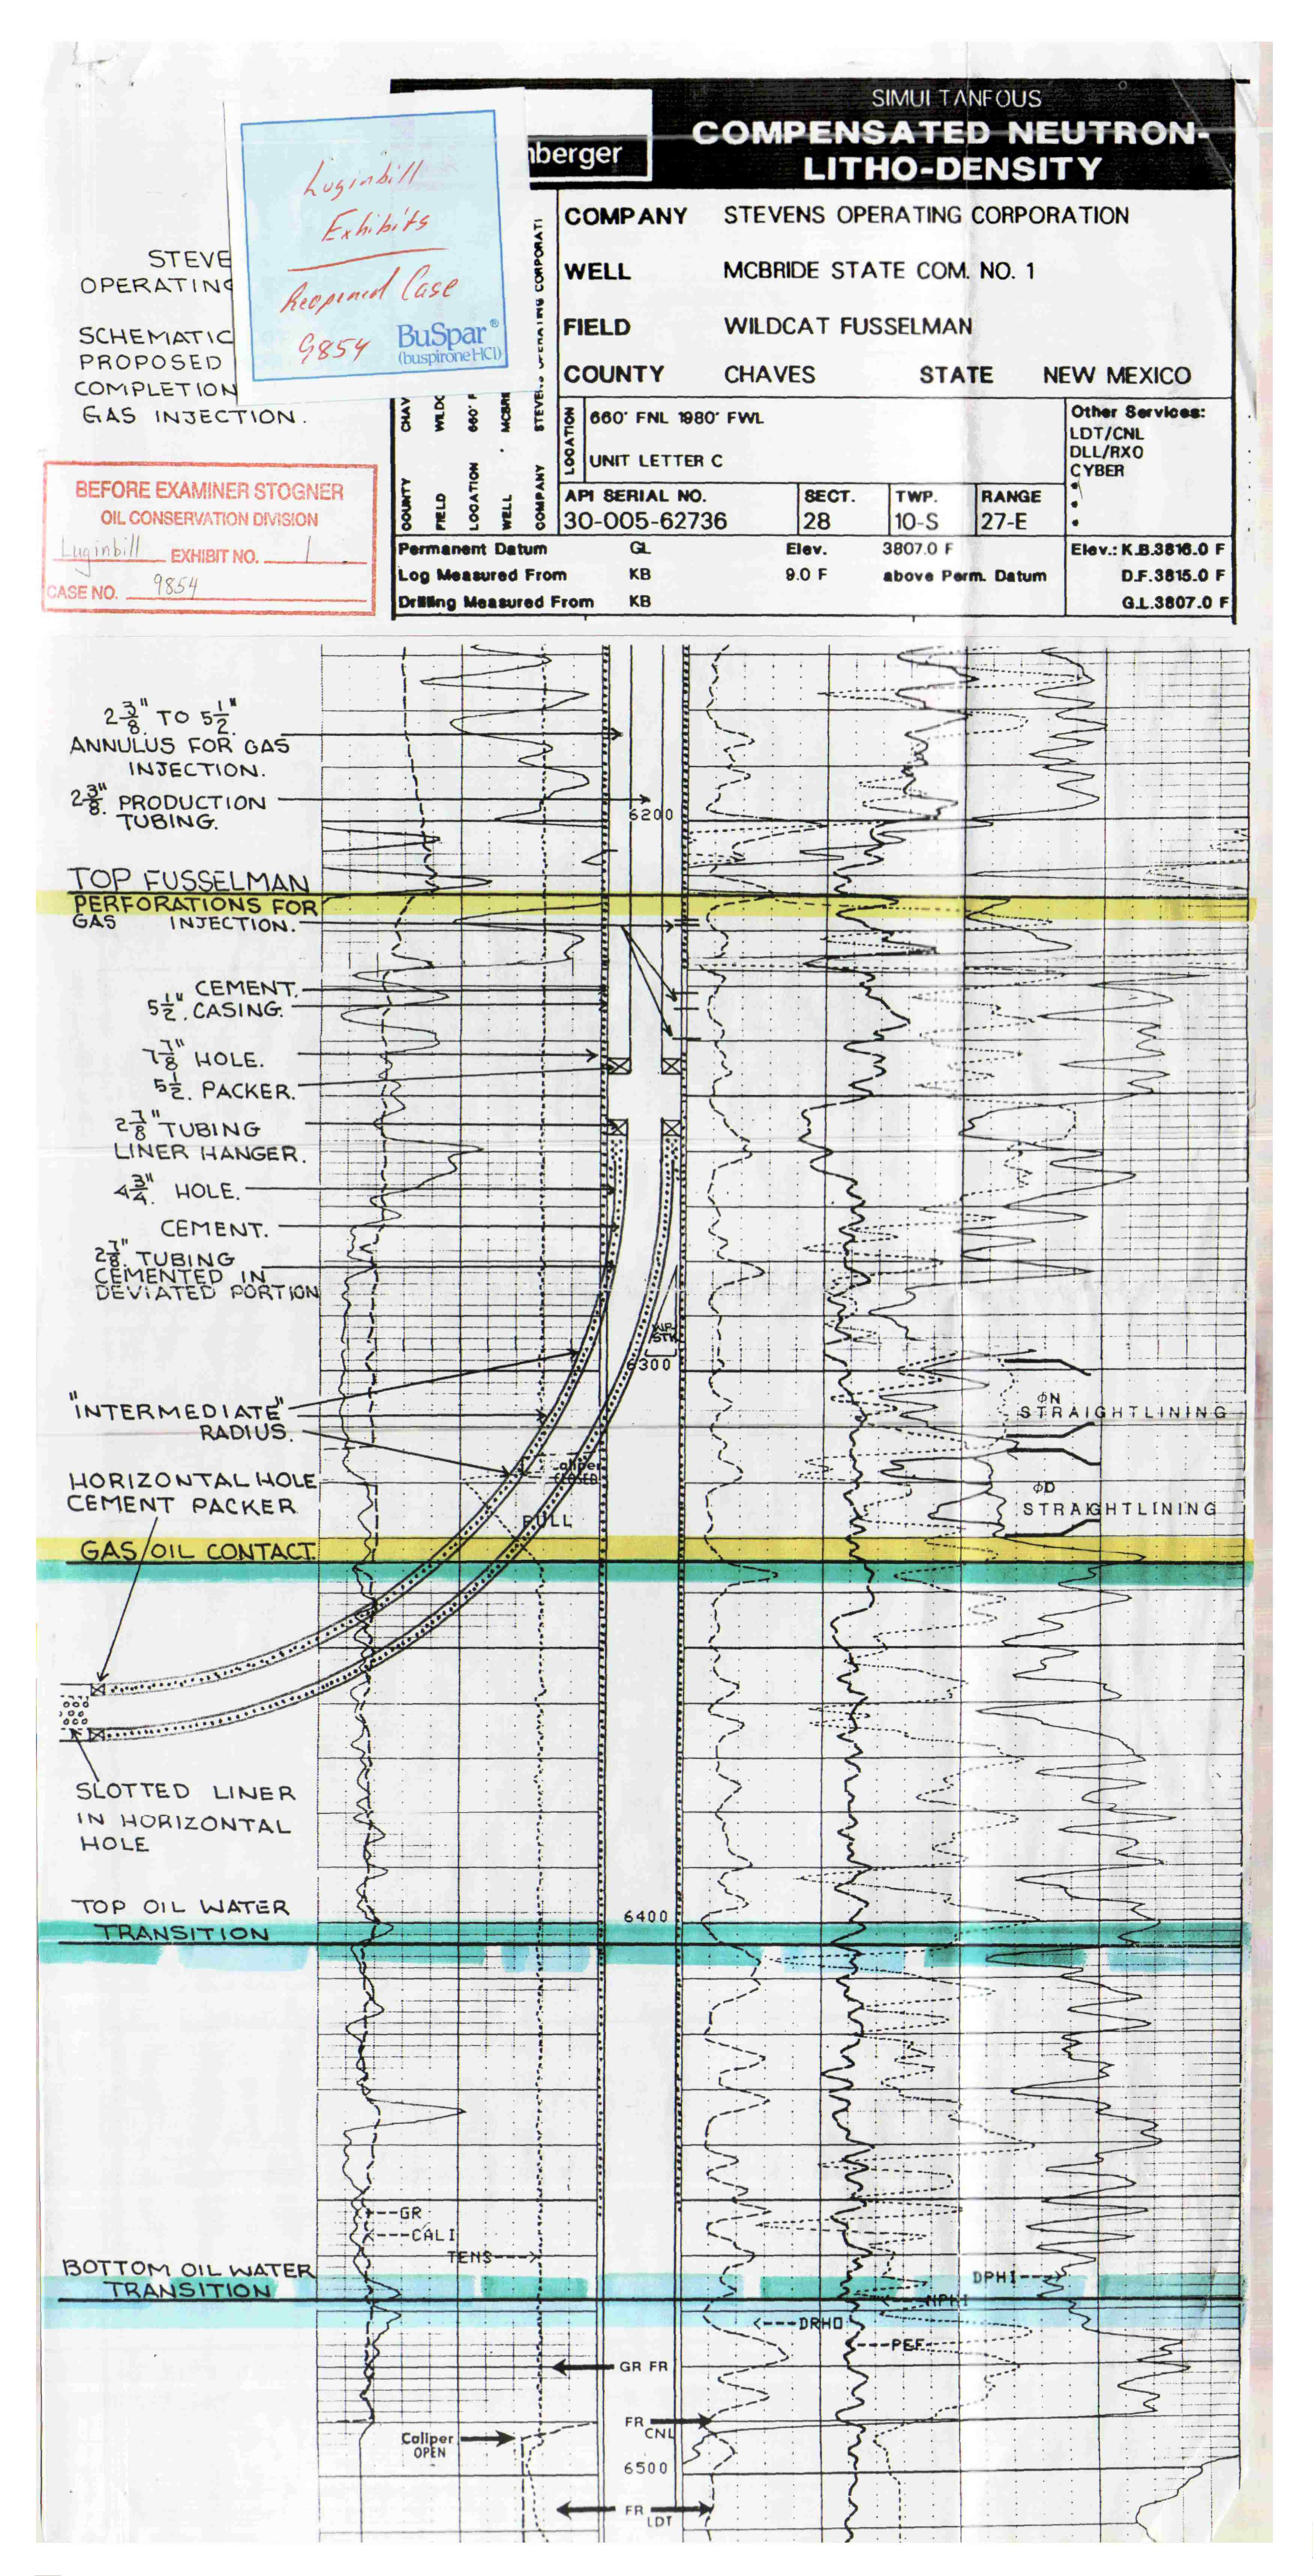 SIMULTANEOUS
COMPENSATED NEUTRON-
LITHO-DENSITY
nberger
Luginbill
Exhibits
Reopened Case
9854
BuSpar®
(buspirone HCl)
STEVE
OPERATING
SCHEMATIC
PROPOSED
COMPLETION
GAS INJECTION.
BEFORE EXAMINER STOGNER
OIL CONSERVATION DIVISION
Luginbill EXHIBIT NO. 1
CASE NO. 9854
COUNTY CHAV
FIELD WILDC
LOCATION 660' F
WELL MCBRI
COMPANY STEVENS OPERATING CORPORATI
COMPANY STEVENS OPERATING CORPORATION
WELL MCBRIDE STATE COM. NO. 1
FIELD WILDCAT FUSSELMAN
COUNTY CHAVES STATE NEW MEXICO
LOCATION
660' FNL 1980' FWL
UNIT LETTER C
Other Services:
LDT/CNL
DLL/RXO
CYBER
API SERIAL NO. SECT. TWP. RANGE
30-005-62736 28 10-S 27-E
Permanent Datum GL Elev. 3807.0 F Elev.: K.B.3816.0 F
Log Measured From KB 9.0 F above Perm. Datum D.F.3815.0 F
Drilling Measured From KB G.L.3807.0 F
2 3/8" TO 5 1/2"
ANNULUS FOR GAS
INJECTION.
2 3/8" PRODUCTION
TUBING.
6200
TOP FUSSELMAN
PERFORATIONS FOR
GAS INJECTION.
CEMENT.
5 1/2" CASING.
7 7/8" HOLE.
5 1/2. PACKER.
2 7/8" TUBING
LINER HANGER.
4 3/4" HOLE.
CEMENT.
2 7/8" TUBING
CEMENTED IN
DEVIATED PORTION
WP
STK
6300
"INTERMEDIATE"
RADIUS.
ϕN
STRAIGHTLINING
HORIZONTAL HOLE
CEMENT PACKER
aliper
CLOSED
PULL
ϕD
STRAIGHTLINING
GAS/OIL CONTACT.
SLOTTED LINER
IN HORIZONTAL
HOLE
TOP OIL WATER
TRANSITION
6400
GR
CALI
TENS
BOTTOM OIL WATER
TRANSITION
DPHI
NPHI
DRHO
PEF
GR FR
FR
CNL
Caliper
OPEN
6500
FR
LDT